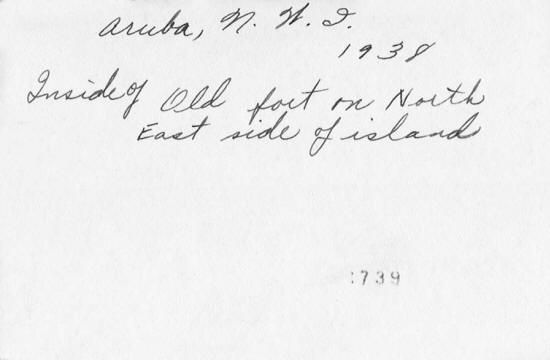 Aruba, N. W. I.
1938
Inside of Old fort on North
East side of island
:739